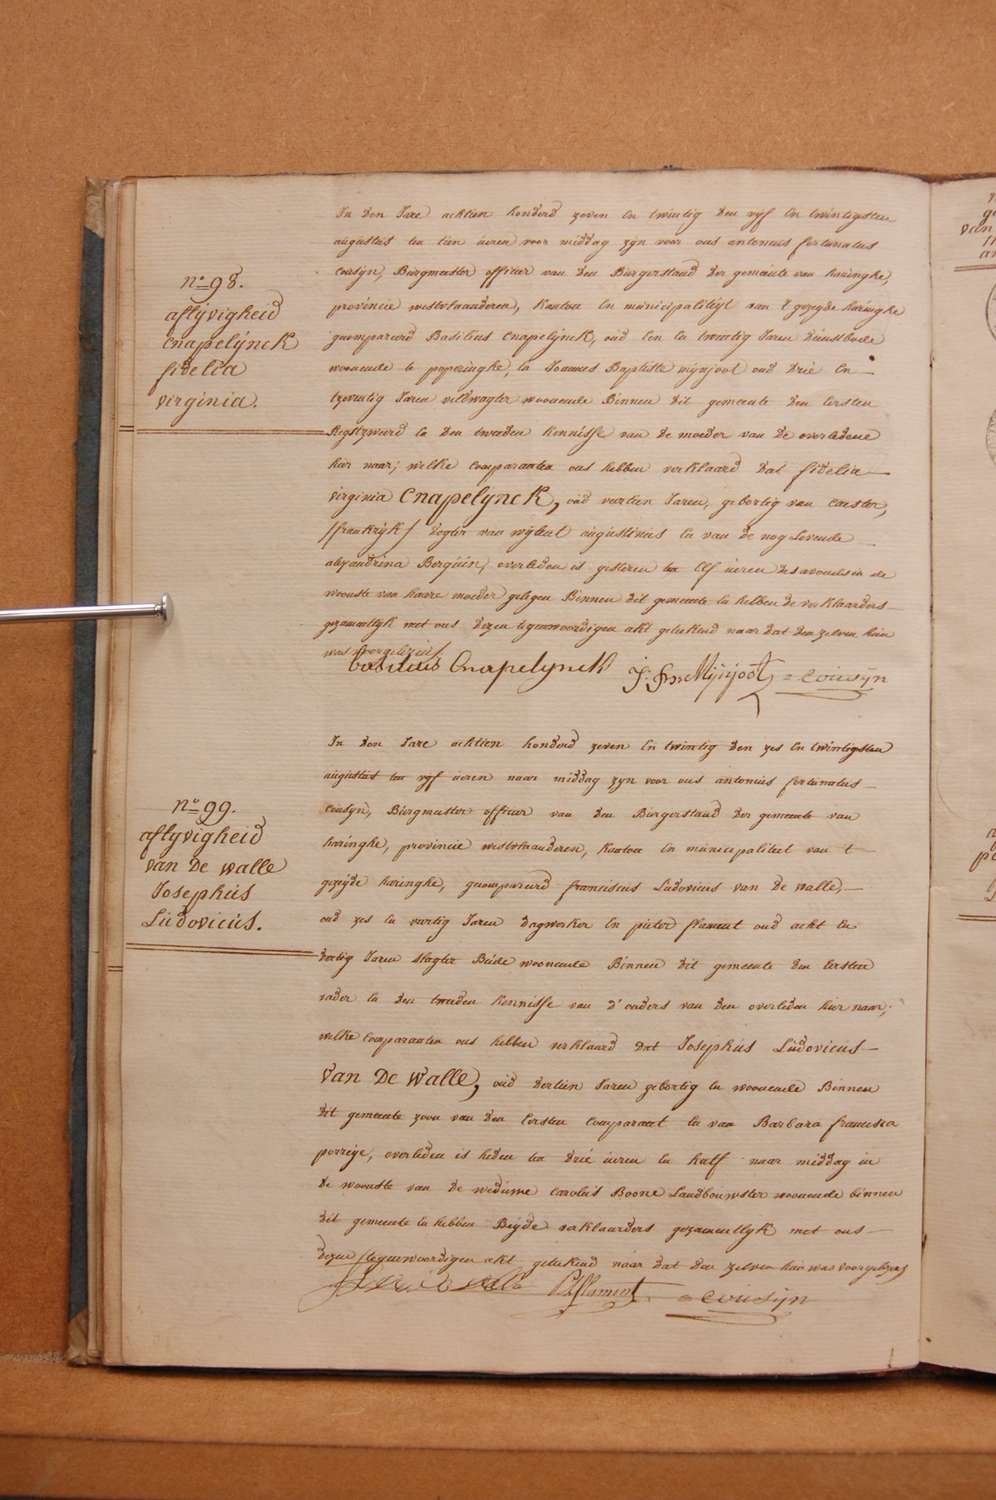 n.o 98.
aflijvigheid
Cnapelÿnck
fidelia
virginia.
In den Jare achtien honderd zeven En twintig den vijf En twintigsten
augustus ten tien ueren voor middag zijn voor ons antonius fortunatus
Cousijn, Burgmeester officier van den Burgerstand der gemeente van haringhe,
provincie westvlaanderen, Kanton En municipalitijt van 't gezeyde haringhe
gecompareerd Basilius Cnapelijnck, oud Een En twintig Jaren dienstbode
woonende te poperinghe, En Joannes Baptiste mijnjoot oud drie En
tzeventig Jaren veldwagter woonende Binnen dit gemeente den Eersten
En den tweeden Kennisse van de moeder van de overledene
hier naar; welke Comparanten ons hebben verklaard dat fidelia
virginia Cnapelÿnck, oud veertien Jaren, gebortig van Caester,
/frankrijk/ dogter van wijlent augustinus En van de nog Levende
alexandrina Berquin, overleden is gisteren ten Elf ueren des avonds in de
woonste van haare moeder gelegen Binnen dit gemeente En hebben de verklaarders
gezamentlijk met ons dezen tegenwoordigen akt geteekend naar dat den zelven hun
was voorgelezen/.
Basilius Cnapelynck J: Mijnjoot Cousijn
n.o 99.
aflijvigheid
van De walle
Josephus
Ludovicus.
In den Jare achtien honderd zeven En twintig den zes En twintigsten
augustus ten vijf ueren naar middag zijn voor ons antonius fortunatus
Cousijn, Burgmeester officier van den Burgerstand der gemeente van
haringhe, provincie westvlaanderen, Kanton En municipaliteit van t
gezeijde haringhe, gecompareerd franciscus Ludovicus van De walle,
oud zes En veertig Jaren dagwerker En pieter flament oud acht En
dertig Jaren slagter Beide woonende Binnen dit gemeente den Eersten
vader En den tweeden Kennisse van d'ouders van den overleden hier naar;
welke Comparanten ons hebben verklaard dat Josephus Ludovicus
van De walle, oud dertien Jaren gebortig En woonende Binnen
dit gemeente zoon van den Eersten Comparant En van Barbara francisca
overleden is heden ten drie ueren En half naar middag in
de woonste van de weduwe Carolus Boone Landbouwster woonende binnen
dit gemeente En hebben Beijde verklaarders gezamentlijk met ons
dezen tegenwoordigen akt geteekend naar dat den zelven hun was voorgelezen/
P. flament Cousijn